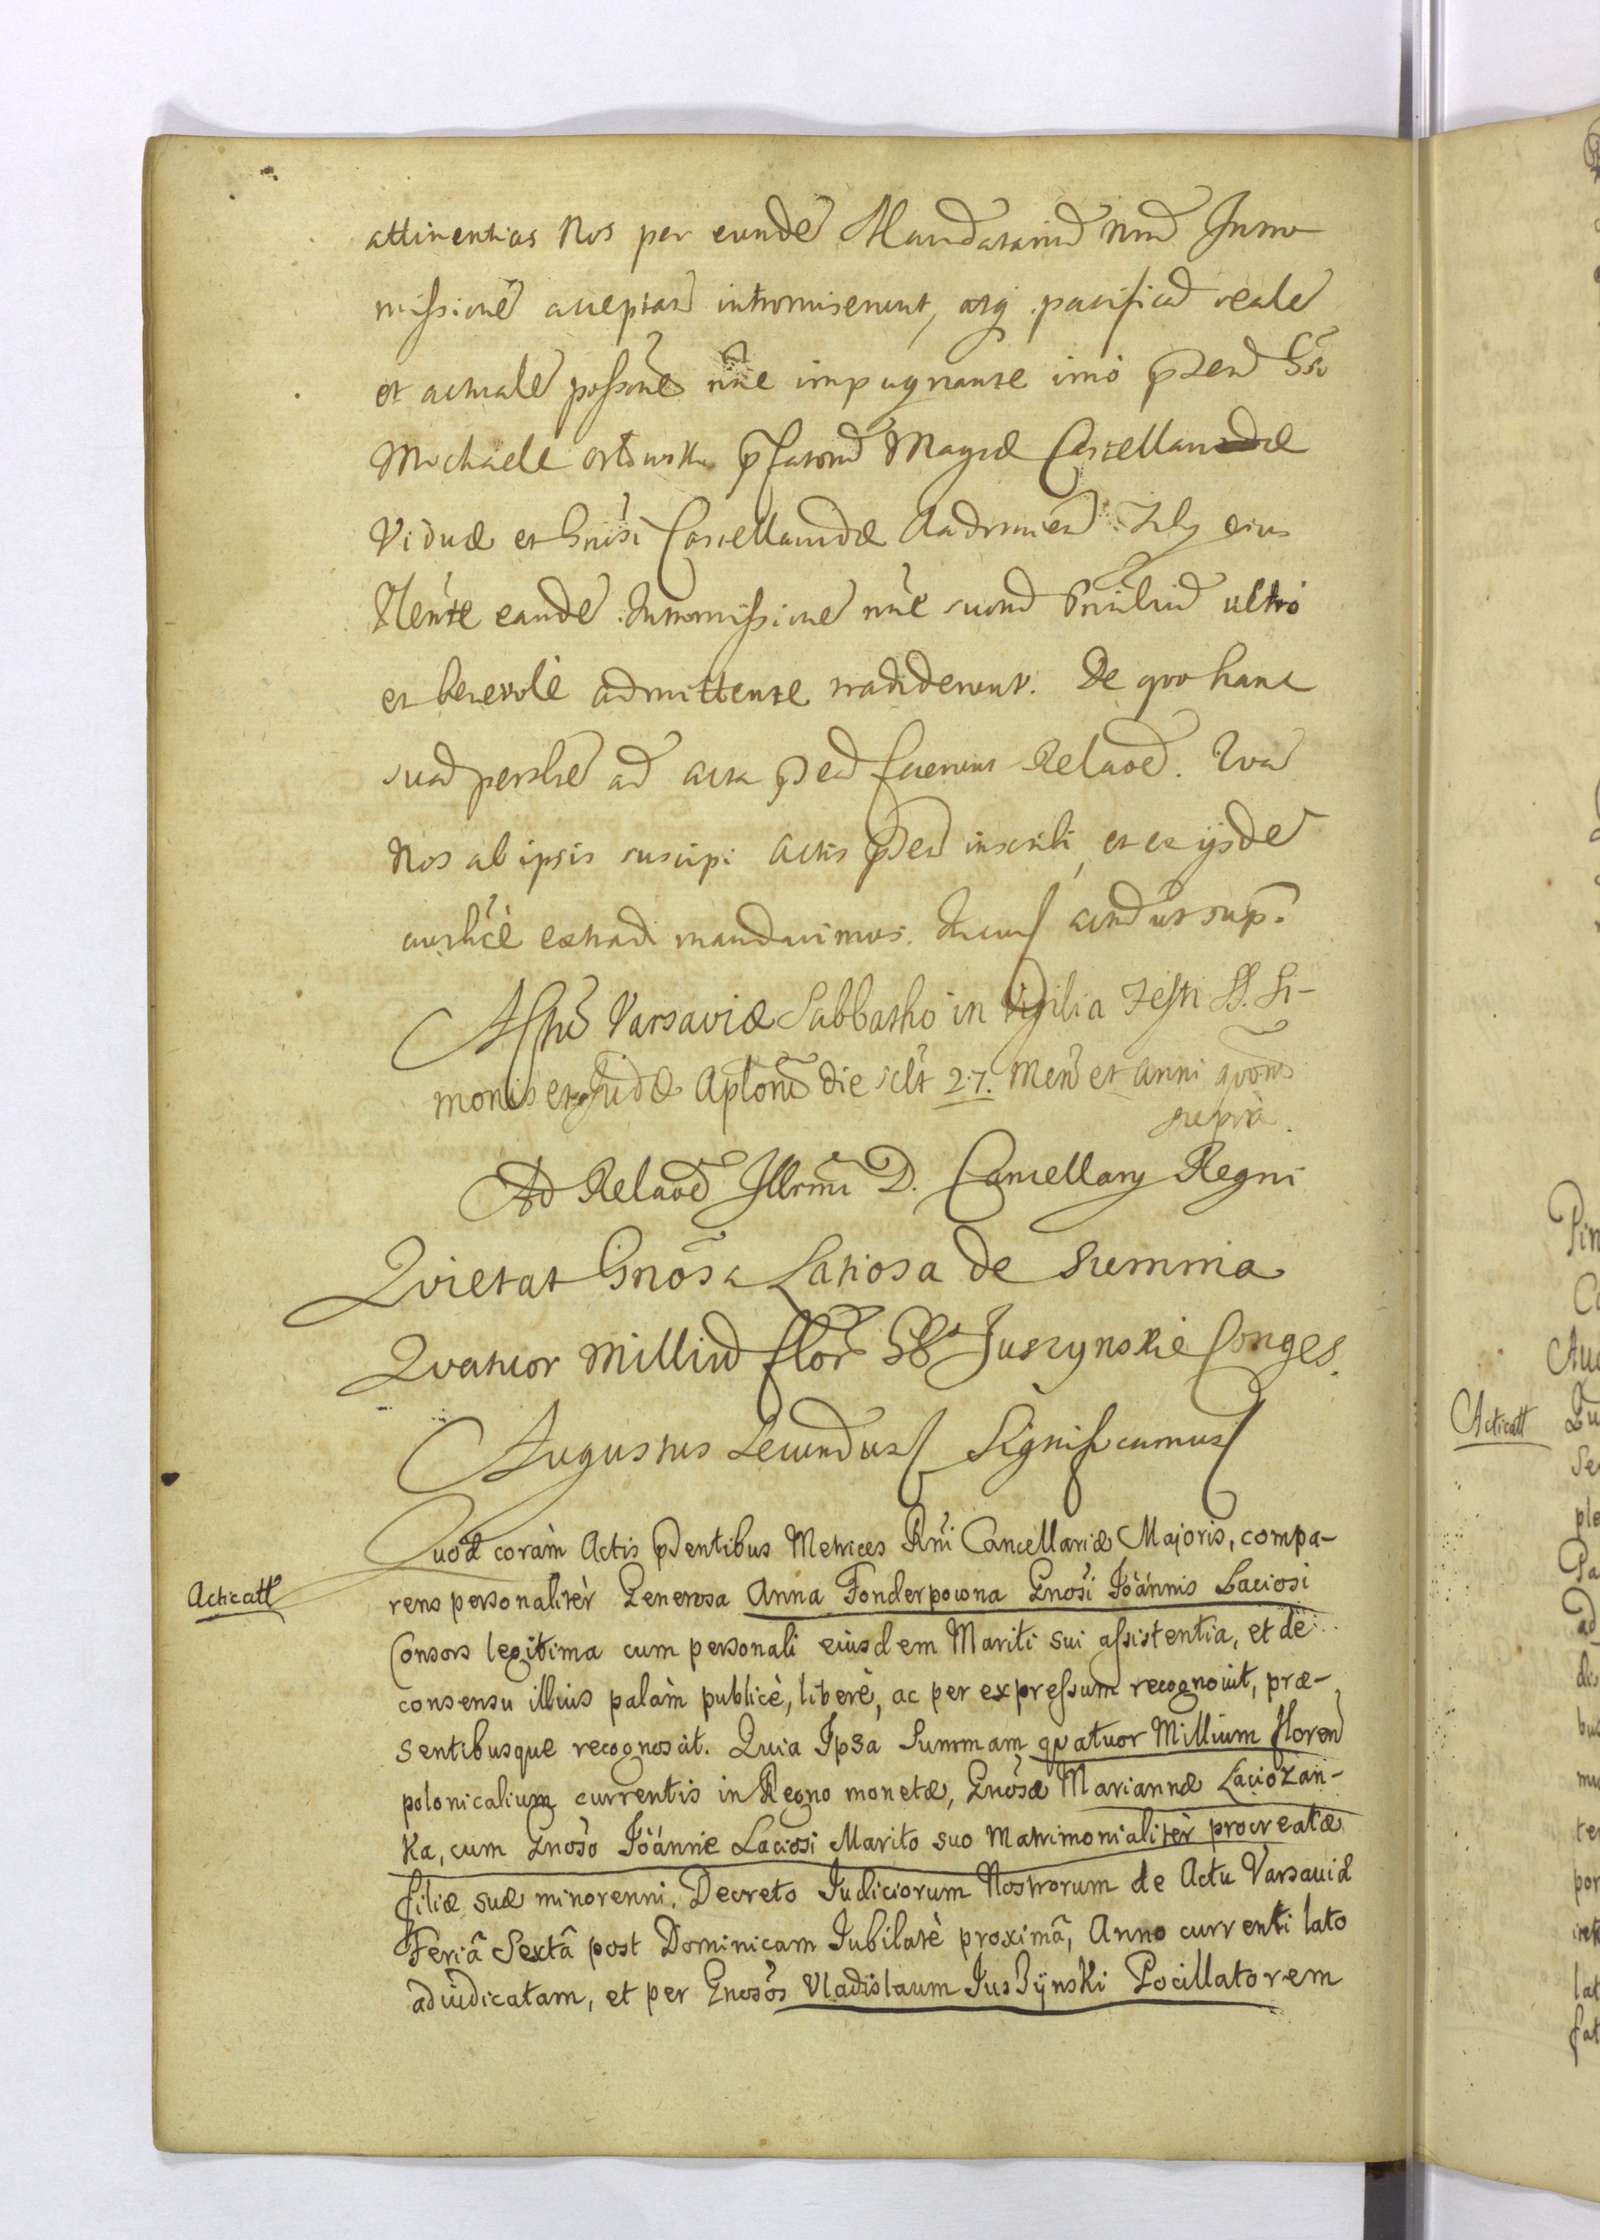 attinentias Nos per eundē Mandatariū Nrū Intro
missionē acceptam intromiserunt, atq pacificā realē
et actualē possonē nne impugnante imò pntem Gso
Michaele prfatorū Magcæ Castellanidæ
Viduæ et Gnosi Castellanidæ filij eius
eandē Intromissionē nne suorū ultrò
et benevolè admittente tradiderunt. De quo hanc
suā ad acta pntem fecerunt Relaoē. Quā
Nos ab ipsis suscipi Actis pntem inscribi, et ex ijsdē
authcè extradi mandavimus. ut sup.
Varsaviæ Sabbatho in Vigilia Festi SS. Si-
monis et Judæ Aplorū die sclt 27. Mens et Anni quorū
suprà.
Ad Relaoē Illrmi D. Cancellarij Regni
Quietat Gnosa Laciosa de Summa
Quatuor Milliū flor GG Juszynskie Conges.
Augustus Secundus Significamus
Quod coràm Actis pntentibus Metrices Rni Cancellariæ Majoris, compa-
Acticatt
rens personalitèr Generosa Anna Fonderpowna Gnosi Joánnis Laciosi
Consors legitima cum personali eiusdem Mariti sui assistentia, et de
consensu illius palàm publicè, liberè, ac per expressum recognouit, præ-
sentibusque recognoscit. Quia Ipsa Summam quatuor Millium floren
polonicalium currentis in Regno monetæ, Gnosæ Mariannæ Laciozan-
ka, cum Gnoso Joánne Laciosi Marito suo Matrimonialitèr procreatæ
filiæ suæ minorenni, Decreto Iudiciorum Nostrorum de Actu Varsauiæ
Feriâ Sextâ post Dominicam Iubilatè proximâ, Anno currenti lato
adiudicatam, et per Gnosos Vladislaum Juszÿnski Pocillatorem
Acticatt